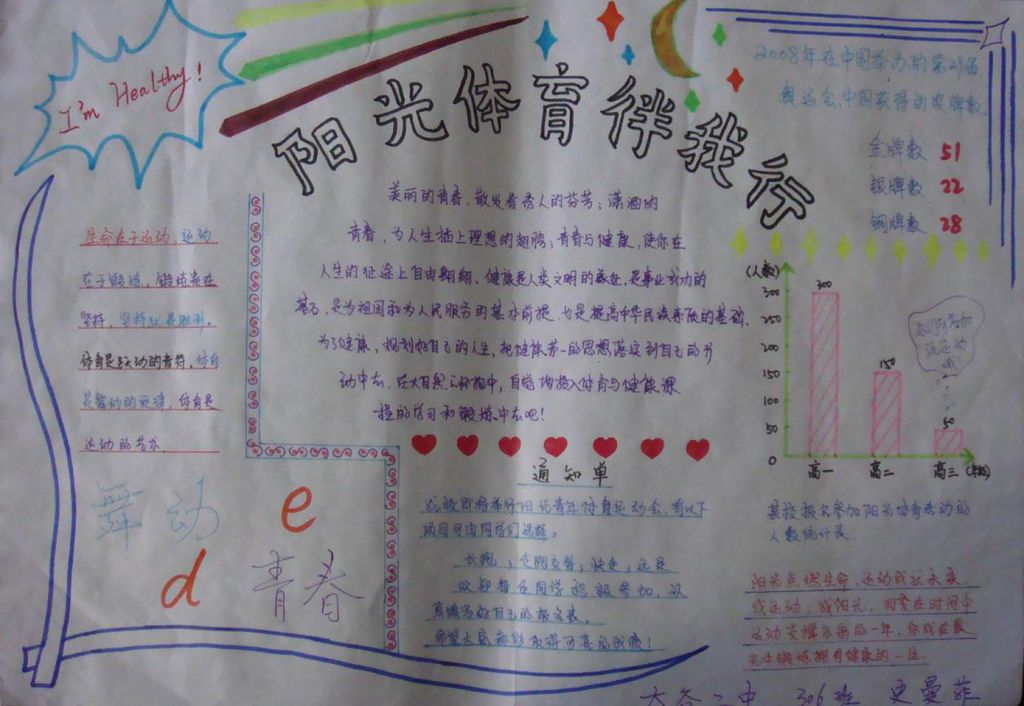 I'm Healthy!
阳光体育伴我行
2008年在中国举办的第29届
奥运会,中国获得的奖牌数
金牌数 51
银牌数 22
铜牌数 28
生命在于运动,运动
在于锻炼,锻炼贵在
坚持,坚持就是胜利。
体育是跃动的音符,体育
是舞动的旋律,体育是
运动的艺术
美丽的青春,散发着诱人的芬芳;潇洒的
青春,为人生插上理想的翅膀;青春与健康,使你在
人生的征途上自由翱翔。健康是人类文明的象征,是事业成功的
基石,是为祖国和为人民服务的基本前提,也是提高中华民族素质的基础。
为了健康,规划好自己的人生,把健康第一的思想落实到自己的行
动中去,在大自然的怀抱中,自觉地投入体育与健康课
程的学习和锻炼中去吧!
舞动 e
d 青春
通知单
我校即将举行阳光青年体育运动会,有以下
项目可由同学们选择。
长跑,
欢迎每位同学积极参加,认
真填写好自己的报名表。
希望大家都能取得可喜的成绩!
(人数)
300
250
200
150
100
50
0
300
150
50
高一 高二 高三 (年级)
某校报名参加阳光体育活动的
人数统计表
阳光点燃生命,运动成就未来。
我运动,我阳光,
运动支撑
光中锻炼拥有健康的一生。
大谷二中 306班 史曼菲